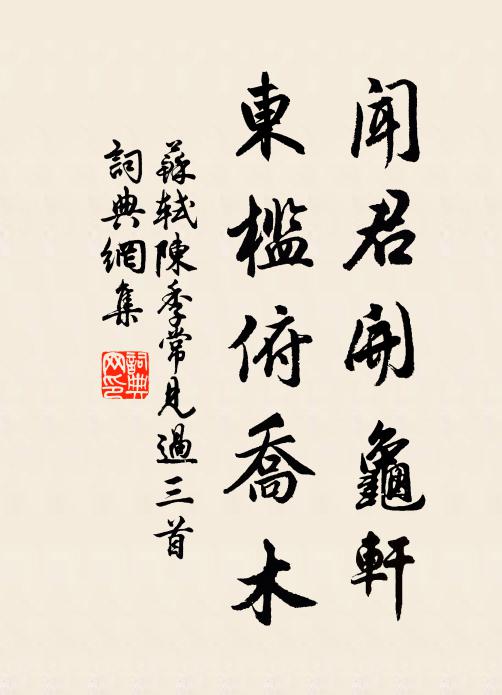 聞君開龜軒
東檻俯喬木
蘇軾陳季常見過三首
詞典網集
詞典网印